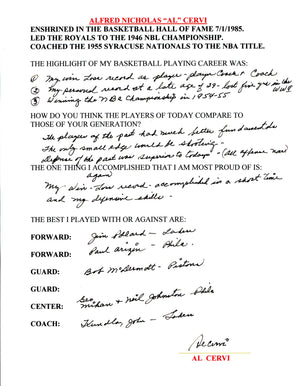 ALFRED NICHOLAS "AL" CERVI
ENSHRINED IN THE BASKETBALL HALL OF FAME 7/1/1985.
LED THE ROYALS TO THE 1946 NBL CHAMPIONSHIP.
COACHED THE 1955 SYRACUSE NATIONALS TO THE NBA TITLE.
THE HIGHLIGHT OF MY BASKETBALL PLAYING CAREER WAS:
① My win Lose record as player - player Coach & Coach
② My personal record at a late age of 29 - lost five yrs in the WW II
③ Winning the NBA Championship in 1954-55
HOW DO YOU THINK THE PLAYERS OF TODAY COMPARE TO
THOSE OF YOUR GENERATION?
The players of the past had much better fundamentals
The only small edge would be shooting -
Defense of the past was superior to today's - (All offense now)
THE ONE THING I ACCOMPLISHED THAT I AM MOST PROUD OF IS:
again
My Win - Lose record - accomplished in a short time
and my defensive skills -
THE BEST I PLAYED WITH OR AGAINST ARE:
FORWARD: Jim Pollard - Lakers
FORWARD: Paul Arizin - Phila.
GUARD: Bob McDermott - Pistons
GUARD:
CENTER: Geo. Mikan & Neil Johnston - Phila
COACH: Kundla, John - Lakers
Al Cervi
AL CERVI